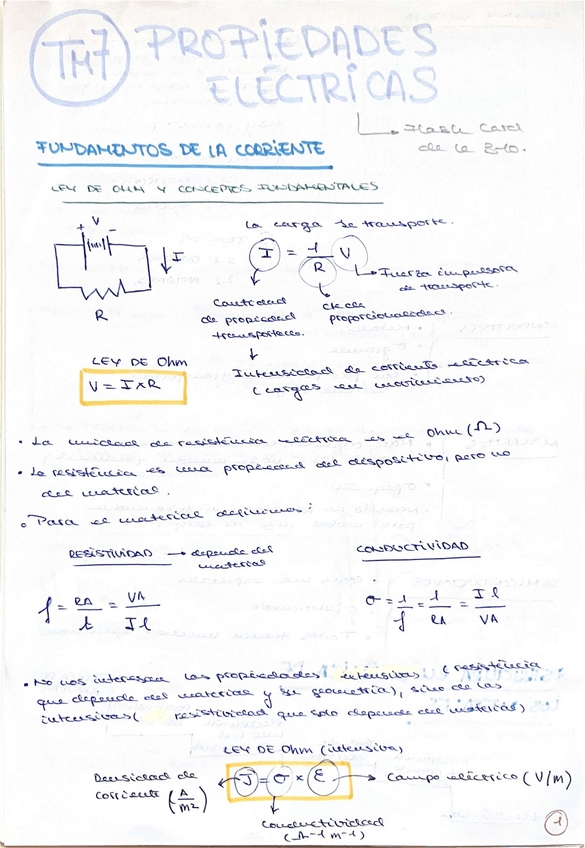 TM7 PROPIEDADES
ELÉCTRICAS
Flash Card
de la 8-10.
FUNDAMENTOS DE LA CORRIENTE
LEY DE OHM Y CONCEPTOS FUNDAMENTALES
La carga se transporte.
+ V -
I
R
I = 1/R V
Fuerza impulsora
de transporte.
Cantidad
de propiedad
cte de
proporcionalidad.
Intensidad de corriente eléctrica
(cargas en movimiento)
LEY DE Ohm
V = I × R
• La unidad de resistência eléctrica es el Ohm (Ω)
• La resistência es una propiedad del dispositivo, pero no
del material.
• Para el material definimos:
RESISTIVIDAD → depende del
material
CONDUCTIVIDAD
ρ = RA/l = VA/Il
σ = 1/ρ = 1/RA = Il/VA
• No nos interesan las propiedades extensivas (resistência
que depende del material y su geometría), sino de las
intensivas ( resistividad que solo depende del material)
LEY DE Ohm (intensiva)
Densidad de
corriente (A/m²)
J = σ × E
Campo eléctrico (V/m)
Conductividad
(Ω⁻¹ m⁻¹)
1